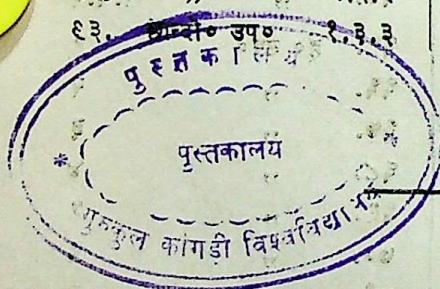 ६३. छान्दो० उप० १.३.३
पुस्तकालय
पुस्तकालय
गुरुकुल कांगड़ी विश्वविद्यालय